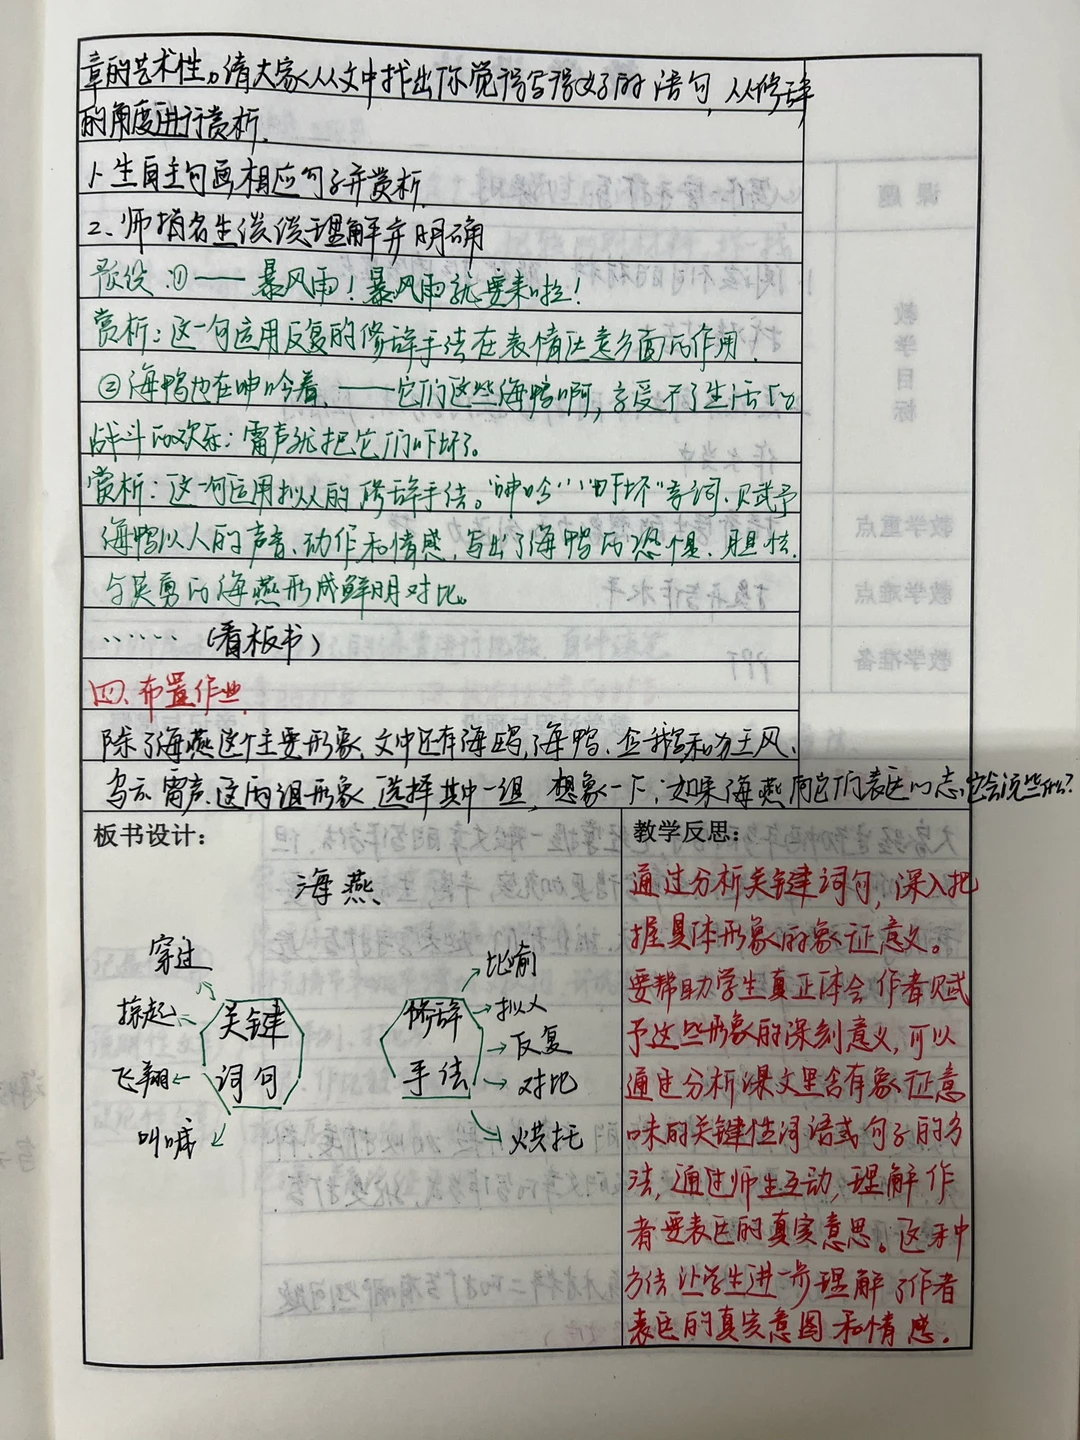 章的艺术性。请大家从文中找出你觉得写得好的语句,从修辞
的角度进行赏析.
1、生自主勾画相应句子并赏析.
2、师指名生谈谈理解并明确
预设:①——暴风雨!暴风雨就要来啦!
赏析:这一句运用反复的修辞手法在表情达意方面的作用.
②海鸭也在呻吟着,——它们这些海鸭啊,享受不了生活的
战斗的欢乐:雷声就把它们吓坏了。
赏析:这一句运用拟人的修辞手法。“呻吟”“吓坏”等词,赋予
海鸭以人的声音、动作和情感,写出了海鸭的恐惧、胆怯.
与英勇的海燕形成鲜明对比。
……(看板书)
四、布置作业
除了海燕这个主要形象,文中还有海鸥,海鸭、企鹅和为王风、
乌云雷声.这两组形象,选择其中一组,想象一下;如果海燕向它们表达心志,它会说些什么?
板书设计:
海燕
穿过
掠起
飞翔
叫喊
关键
词句
修辞
手法
比喻
拟人
反复
对比
烘托
教学反思:
通过分析关键词句,深入把
握具体形象的象征意义。
要帮助学生真正体会作者赋
予这些形象的深刻意义,可以
通过分析课文里含有象征意
味的关键性词语或句子的方
法,通过师生互动,理解作
者要表达的真实意思。这种
方法让学生进一步理解了作者
表达的真实意图和情感.
课题
教学目标
教学重点
教学难点
教学准备
PPT